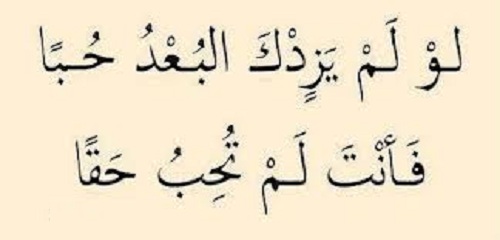 لَوْ لَمْ يَزِدْكَ البُعْدُ حُبًا
فَأَنْتَ لَمْ تُحِبُ حَقًا